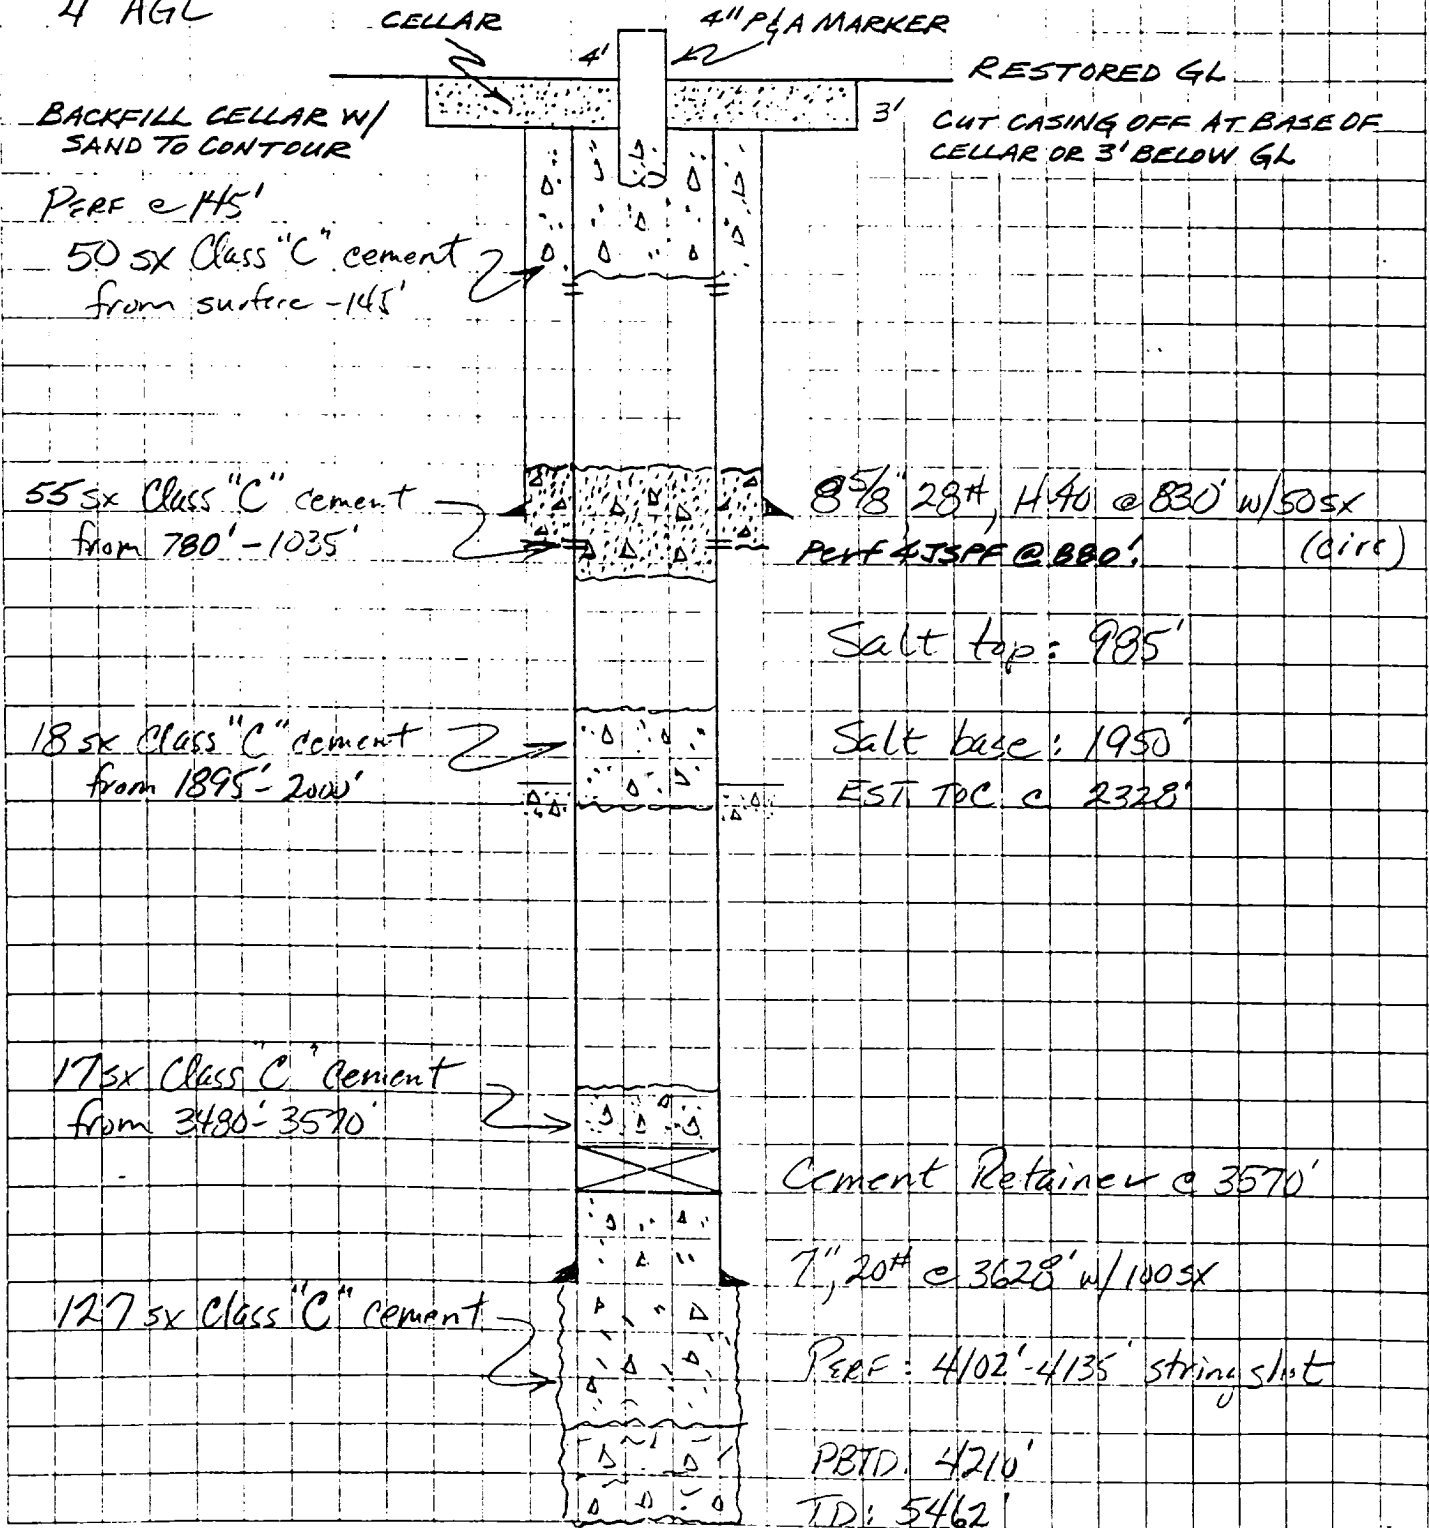 4' AGL
CELLAR
4" P&A MARKER
4'
RESTORED GL
BACKFILL CELLAR W/
SAND TO CONTOUR
3'
CUT CASING OFF AT BASE OF
CELLAR OR 3' BELOW GL
PERF @ 145'
50 sx Class "C" cement
from surface - 145'
55 sx Class "C" cement
from 780' - 1035'
8 5/8" 28#, H-40 @ 830' w/50 sx
(circ)
Perf 4 JSPF @ 880'.
Salt top: 985'
18 sx Class "C" cement
from 1895' - 2000'
Salt base: 1950'
EST. TOC @ 2328'
17 sx Class "C" cement
from 3480' - 3570'
Cement Retainer @ 3570'
7", 20# @ 3628' w/100 sx
127 sx Class "C" cement
PERF: 4102'-4135' string shot
PBTD: 4210'
TD: 5462'